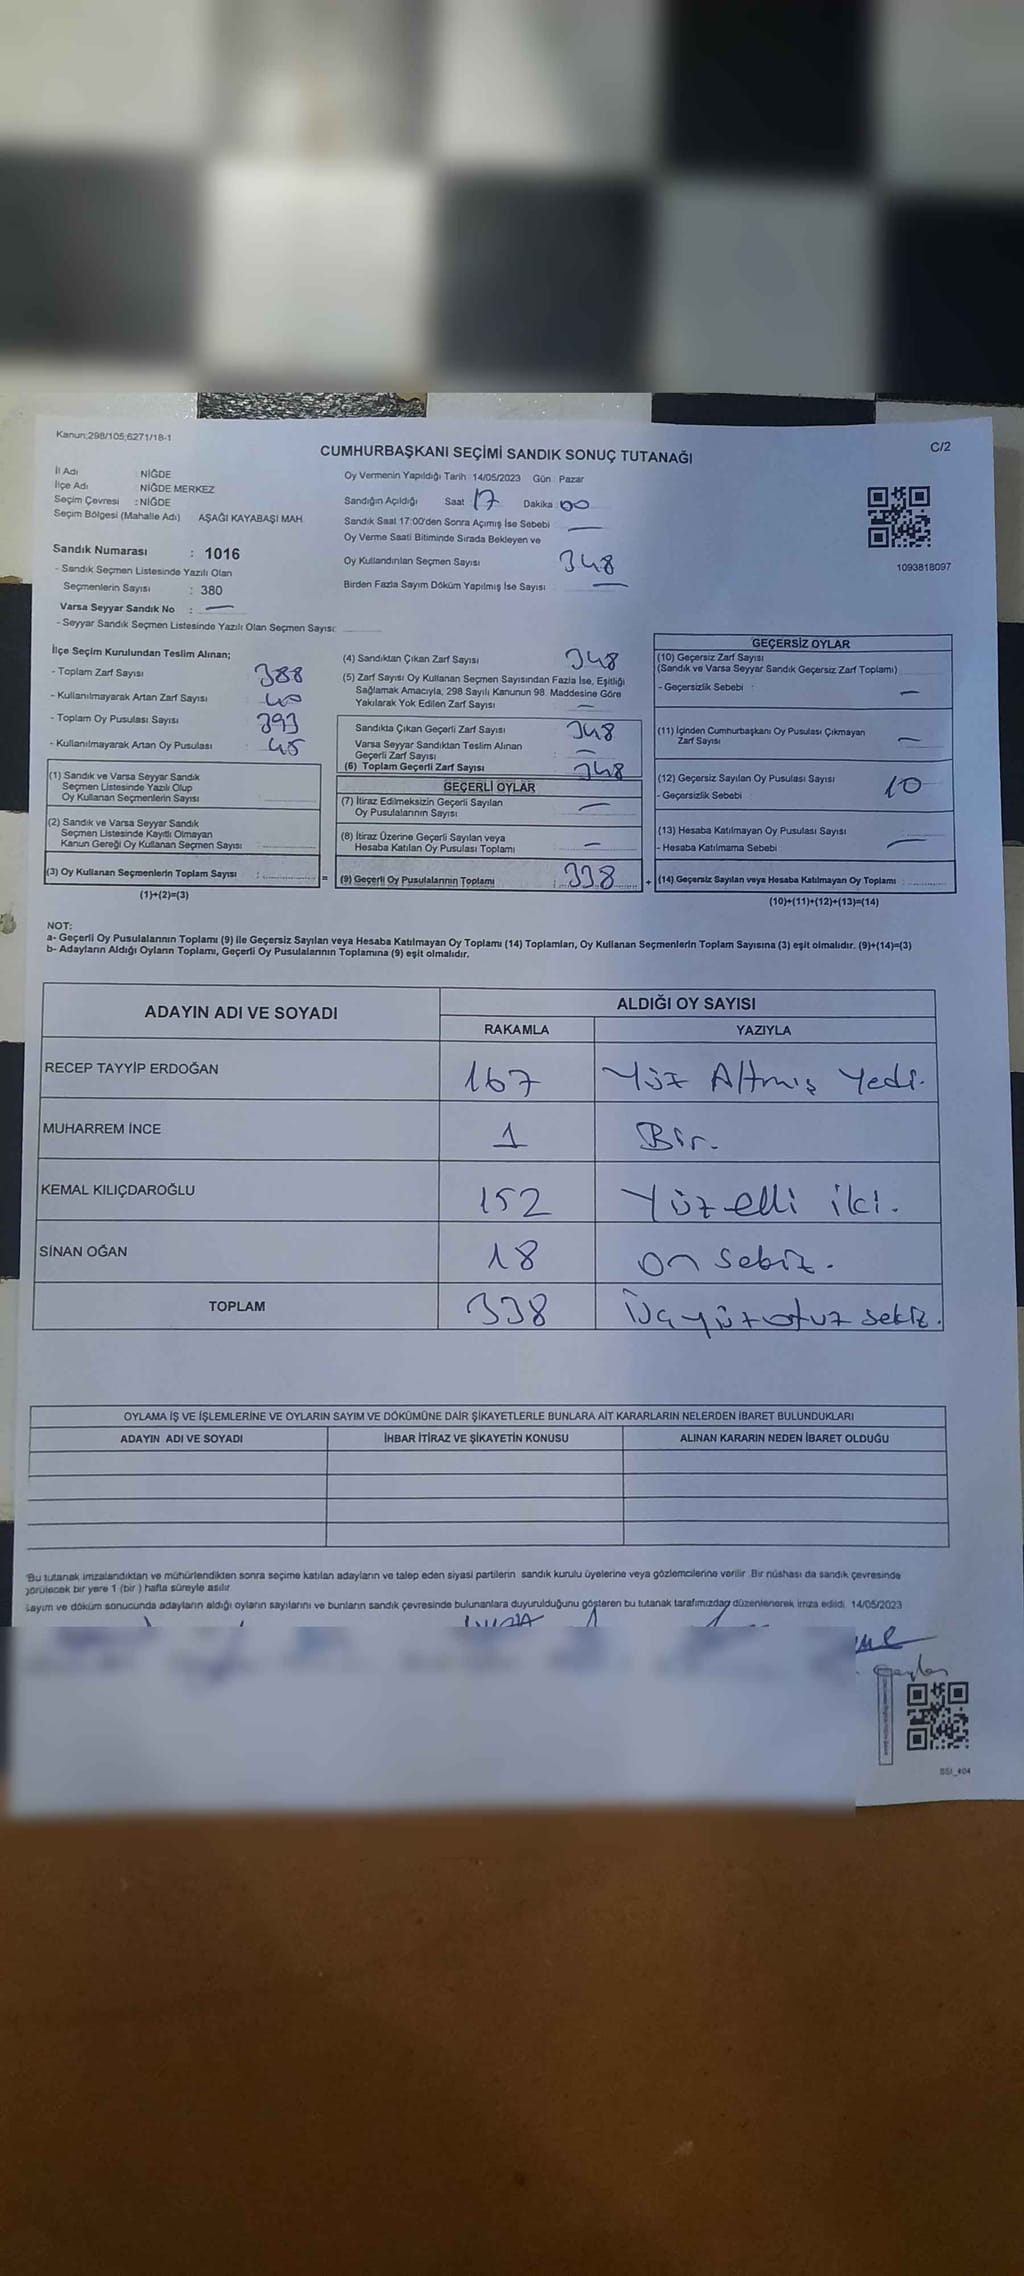 Kanun;298/105,6271/18-1
C/2
CUMHURBAŞKANI SEÇİMİ SANDIK SONUÇ TUTANAĞI
İl Adı : NİĞDE
İlçe Adı : NİĞDE MERKEZ
Seçim Çevresi : NİĞDE
Seçim Bölgesi (Mahalle Adı) AŞAĞI KAYABAŞI MAH.
Sandık Numarası : 1016
- Sandık Seçmen Listesinde Yazılı Olan
Seçmenlerin Sayısı : 380
Varsa Seyyar Sandık No : —
- Seyyar Sandık Seçmen Listesinde Yazılı Olan Seçmen Sayısı:
Oy Vermenin Yapıldığı Tarih 14/05/2023 Gün : Pazar
Sandığın Açıldığı Saat 17 Dakika 00
Sandık Saat 17:00'den Sonra Açımış İse Sebebi —
Oy Verme Saati Bitiminde Sırada Bekleyen ve
Oy Kullandırılan Seçmen Sayısı 348
Birden Fazla Sayım Döküm Yapılmış İse Sayısı —
1093818097
İlçe Seçim Kurulundan Teslim Alınan;
- Toplam Zarf Sayısı : 388
- Kullanılmayarak Artan Zarf Sayısı : 40
- Toplam Oy Pusulası Sayısı : 393
- Kullanılmayarak Artan Oy Pusulası : 45
(1) Sandık ve Varsa Seyyar Sandık
Seçmen Listesinde Yazılı Olup
Oy Kullanan Seçmenlerin Sayısı
(2) Sandık ve Varsa Seyyar Sandık
Seçmen Listesinde Kayıtlı Olmayan
Kanun Gereği Oy Kullanan Seçmen Sayısı
(3) Oy Kullanan Seçmenlerin Toplam Sayısı :
(1)+(2)=(3)
(4) Sandıktan Çıkan Zarf Sayısı 348
(5) Zarf Sayısı Oy Kullanan Seçmen Sayısından Fazla İse, Eşitliği
Sağlamak Amacıyla, 298 Sayılı Kanunun 98. Maddesine Göre
Yakılarak Yok Edilen Zarf Sayısı —
Sandıkta Çıkan Geçerli Zarf Sayısı 348
Varsa Seyyar Sandıktan Teslim Alınan
Geçerli Zarf Sayısı —
(6) Toplam Geçerli Zarf Sayısı 348
GEÇERLİ OYLAR
(7) İtiraz Edilmeksizin Geçerli Sayılan
Oy Pusulalarının Sayısı —
(8) İtiraz Üzerine Geçerli Sayılan veya
Hesaba Katılan Oy Pusulası Toplamı —
= (9) Geçerli Oy Pusulalarının Toplamı : 338
GEÇERSİZ OYLAR
(10) Geçersiz Zarf Sayısı
(Sandık ve Varsa Seyyar Sandık Geçersiz Zarf Toplamı)
- Geçersizlik Sebebi : —
(11) İçinden Cumhurbaşkanı Oy Pusulası Çıkmayan
Zarf Sayısı —
(12) Geçersiz Sayılan Oy Pusulası Sayısı 10
- Geçersizlik Sebebi :
(13) Hesaba Katılmayan Oy Pusulası Sayısı
- Hesaba Katılmama Sebebi : —
+ (14) Geçersiz Sayılan veya Hesaba Katılmayan Oy Toplamı :
(10)+(11)+(12)+(13)=(14)
NOT:
a- Geçerli Oy Pusulalarının Toplamı (9) ile Geçersiz Sayılan veya Hesaba Katılmayan Oy Toplamı (14) Toplamları, Oy Kullanan Seçmenlerin Toplam Sayısına (3) eşit olmalıdır. (9)+(14)=(3)
b- Adayların Aldığı Oyların Toplamı, Geçerli Oy Pusulalarının Toplamına (9) eşit olmalıdır.
ADAYIN ADI VE SOYADI ALDIĞI OY SAYISI
RAKAMLA YAZIYLA
RECEP TAYYİP ERDOĞAN 167 Yüz Altmış Yedi.
MUHARREM İNCE 1 Bir.
KEMAL KILIÇDAROĞLU 152 Yüz elli iki.
SİNAN OĞAN 18 on sekiz.
TOPLAM 338 Üçyüzotuz sekiz.
OYLAMA İŞ VE İŞLEMLERİNE VE OYLARIN SAYIM VE DÖKÜMÜNE DAİR ŞİKAYETLERLE BUNLARA AİT KARARLARIN NELERDEN İBARET BULUNDUKLARI
ADAYIN ADI VE SOYADI İHBAR İTİRAZ VE ŞİKAYETİN KONUSU ALINAN KARARIN NEDEN İBARET OLDUĞU
Bu tutanak imzalandıktan ve mühürlendikten sonra seçime katılan adayların ve talep eden siyasi partilerin sandık kurulu üyelerine veya gözlemcilerine verilir. Bir nüshası da sandık çevresinde
görülecek bir yere 1 (bir ) hafta süreyle asılır.
Sayım ve döküm sonucunda adayların aldığı oyların sayılarını ve bunların sandık çevresinde bulunanlara duyurulduğunu gösteren bu tutanak tarafımızdan düzenlenerek imza edildi. 14/05/2023
SSI_404